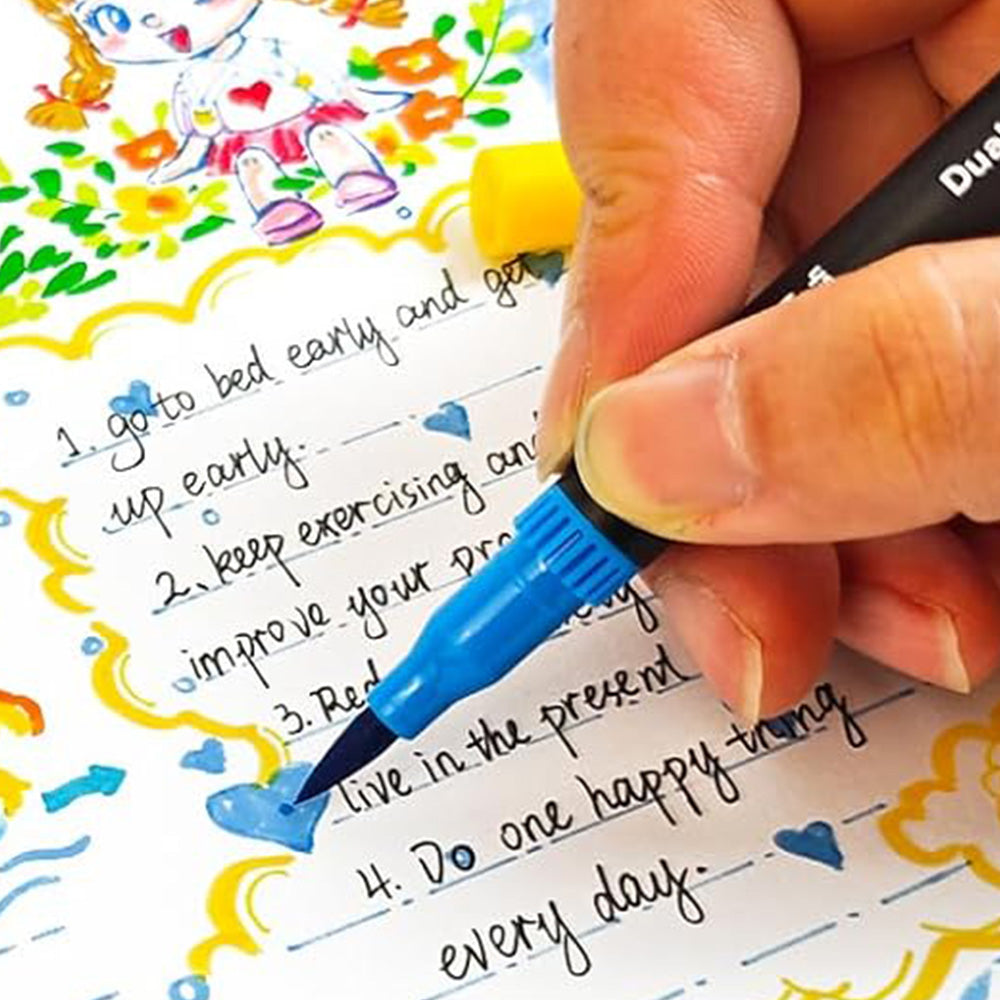 1. go to bed early and get
up early.
2. keep exercising and
improve your
3.
live in the present
4. Do one happy thing
every day.
Dual